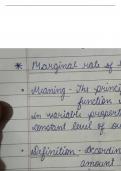 * Marginal rate of
• Meaning - The princi
function
in variable propor
constant level of ou
• Definition - Accordin
amount